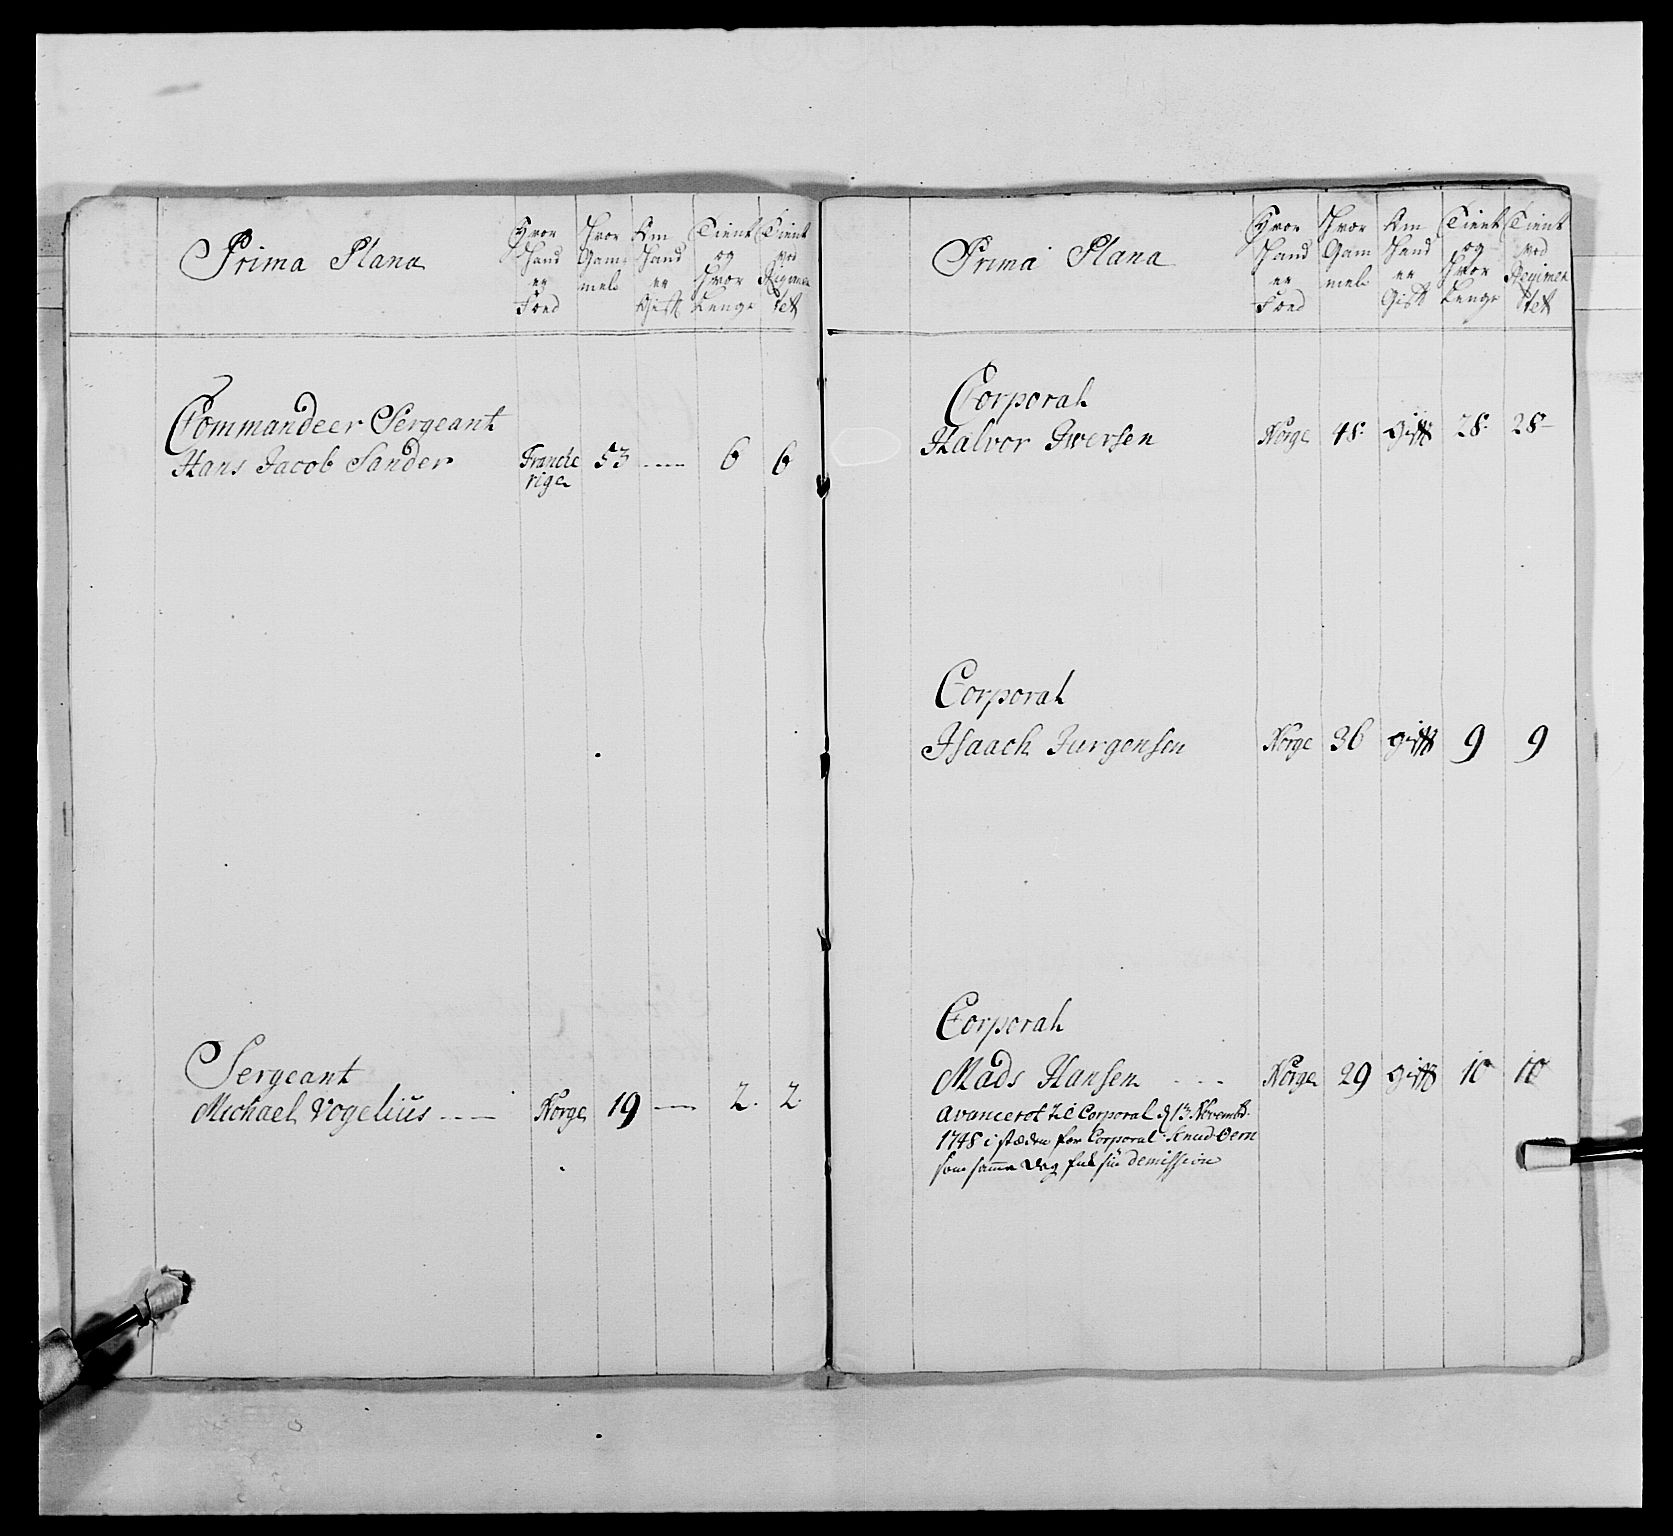 Prima Plana
Hvor
Hand
er
Fӧed
Hvor
Gam
mel
Om
Hand
er
Gift
Tient
og
Hvor
Lenge
Tient
ved
Regimen
tet
Commandeer Sergeant
Hans Jacob Sander
Francke
rige
53 ---- 6 6
Sergeant
Michael Vogelius ---- Norge 19 ---- 2. 2.
Prima Plana
Hvor
Hand
er
Fӧed
Hvor
Gam
mel
Om
Hand
er
Gift
Tient
og
Hvor
Lenge
Tient
ved
Regimen
tet
Corporal
Halvor Iwersen Norge 48. Gift 28. 28-
Corporal
Isaach Jurgensen Norge 36 Gift 9 9
Corporal
Mads Hansen - - - Norge 29 Gift 10 10
Avanceret til Corporal d 13 Novembr.
1748 i stæden for Corporal Knud Oern
som samme Dag fik sin demission